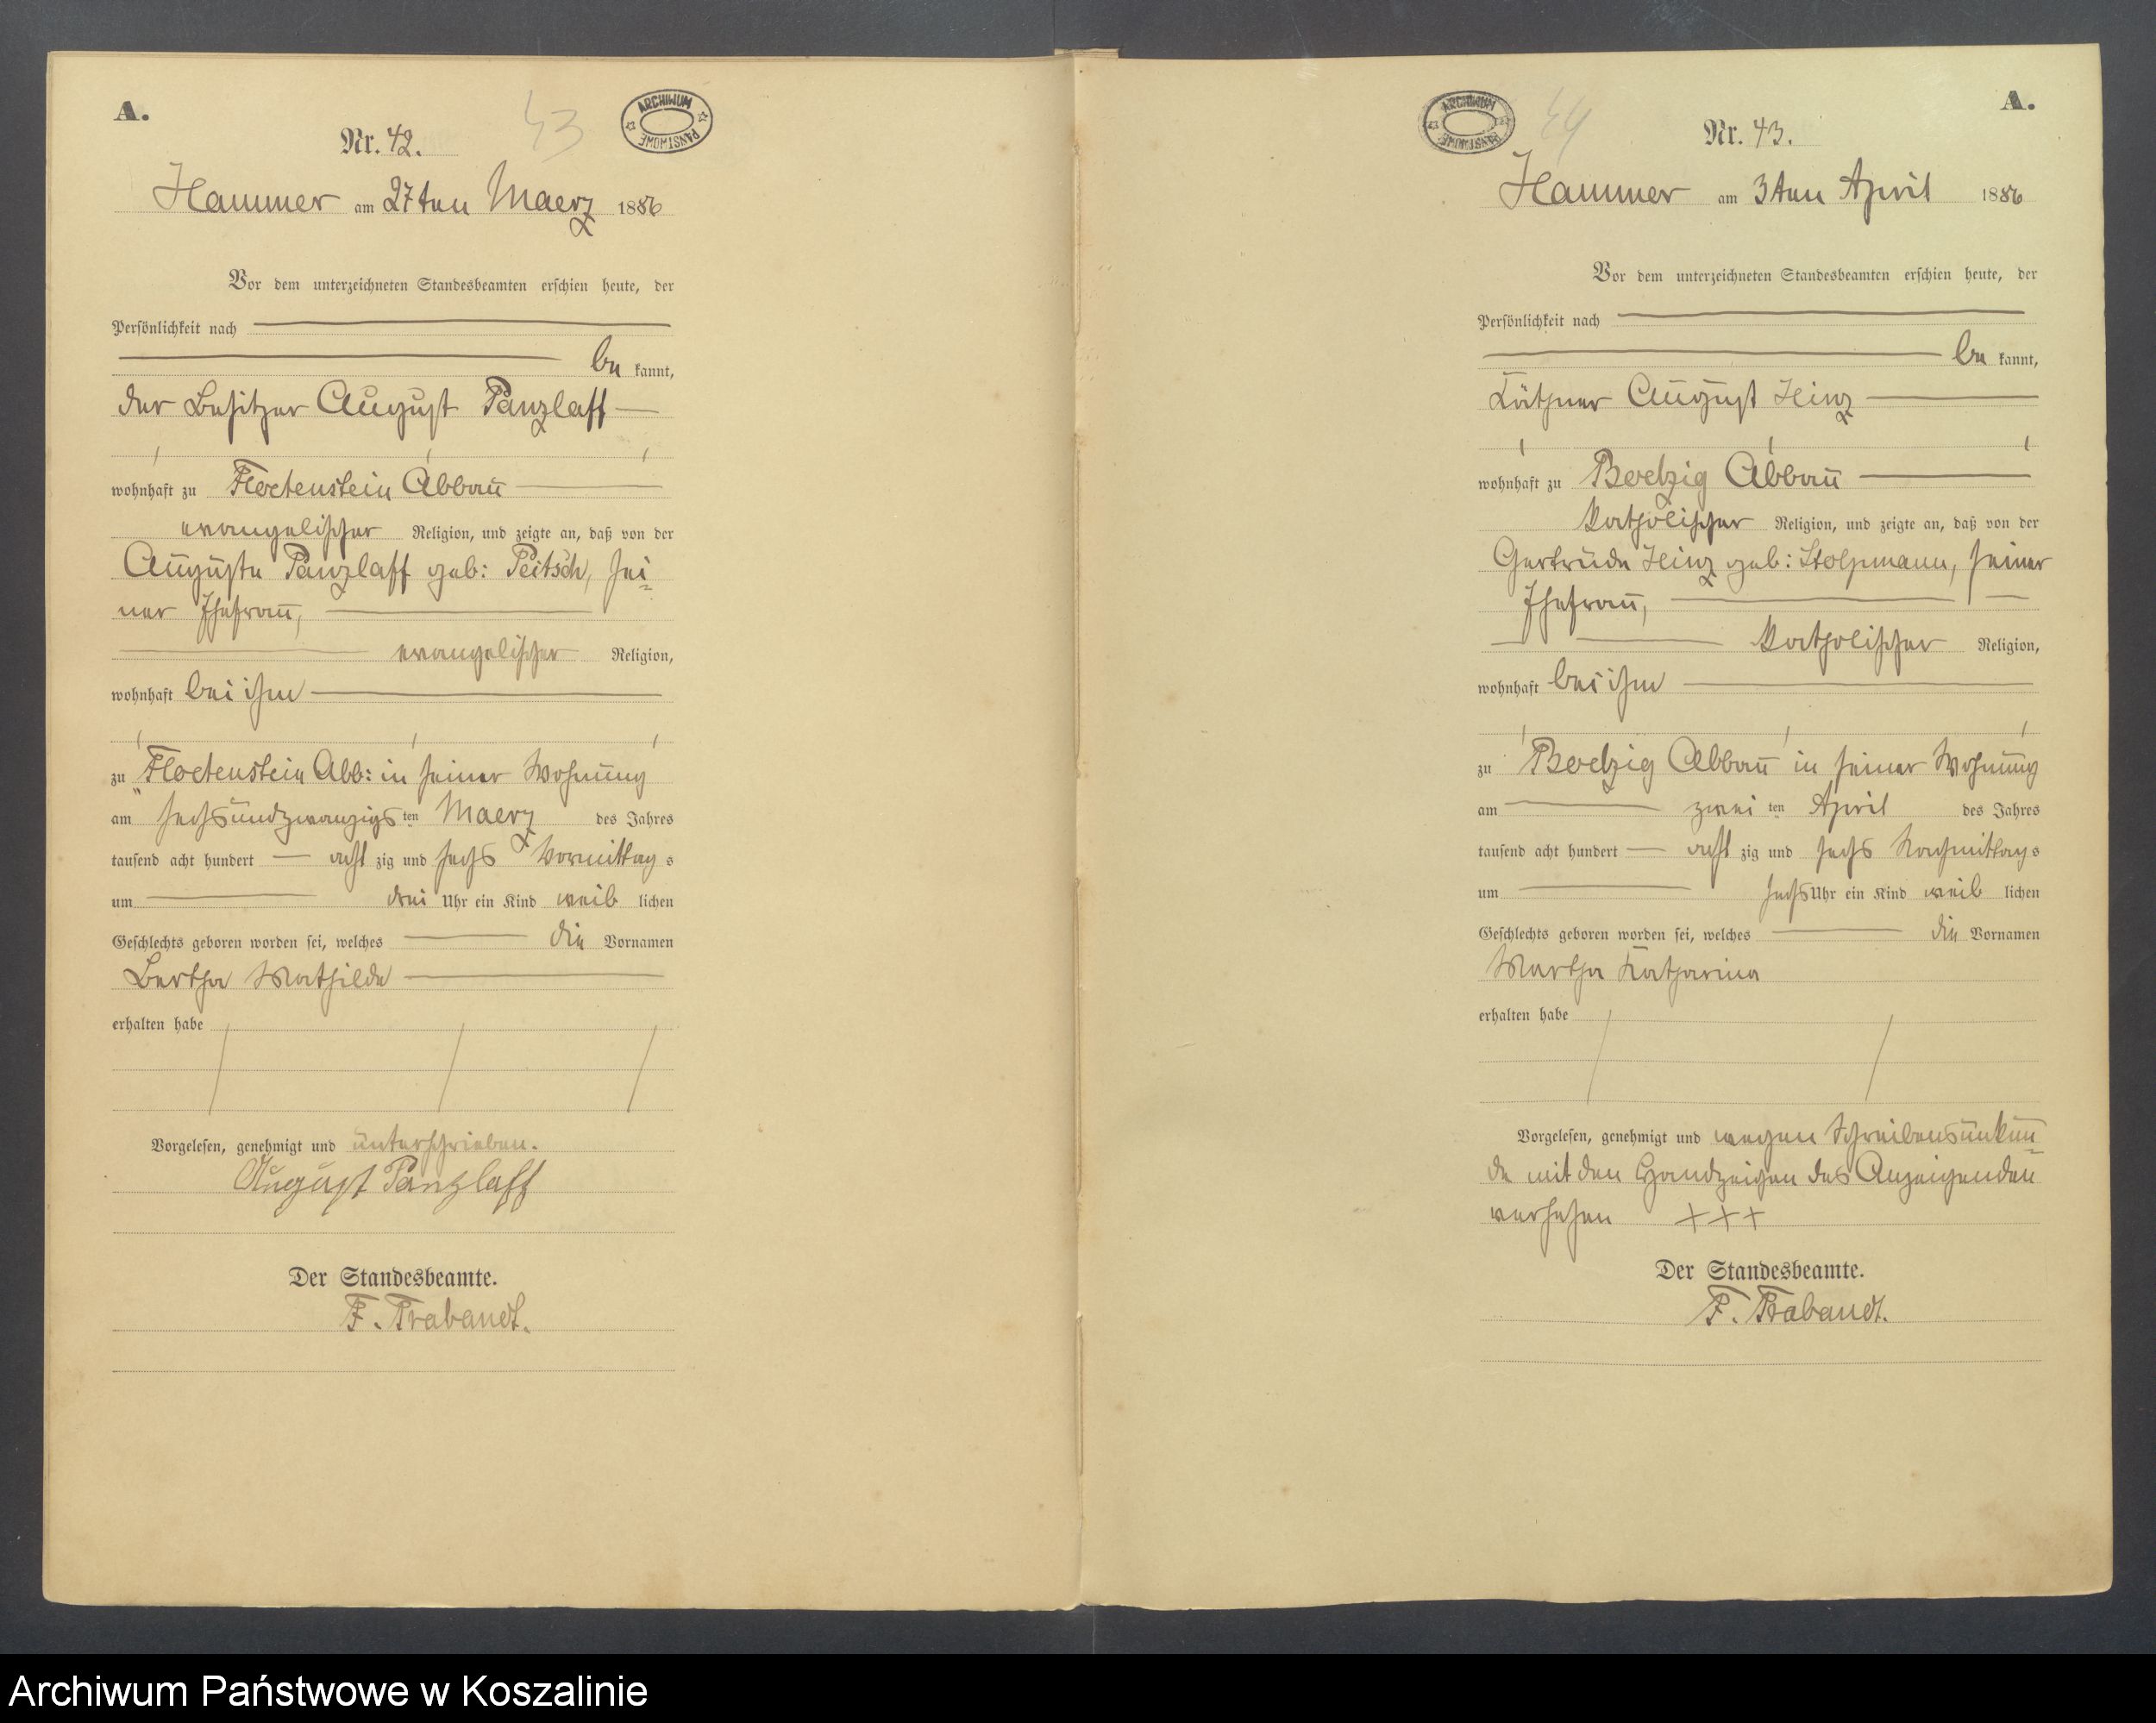 A.
Nr. 42.
43
ARCHIWUM PAŃSTWOWE
Hammer am 27ten Maerz 1886
Vor dem unterzeichneten Standesbeamten erschien heute, der
Persönlichkeit nach
be kannt,
der Besitzer August Panzlaff
wohnhaft zu Floetenstein Abbau
evangelischer Religion, und zeigte an, daß von der
Auguste Panzlaff geb: Peitsch, sei=
ner Ehefrau,
evangelischer Religion,
wohnhaft bei ihm
zu Floetenstein Abb: in seiner Wohnung
am sechsundzwanzigs ten Maerz des Jahres
tausend acht hundert acht zig und sechs Vormittag s
um drei Uhr ein Kind weib lichen
Geschlechts geboren worden sei, welches die Vornamen
Bertha Mathilde
erhalten habe
Vorgelesen, genehmigt und unterschrieben.
August Panzlaff
Der Standesbeamte.
F. Trabandt.
A.
Nr. 43.
44
ARCHIWUM PAŃSTWOWE
Hammer am 3ten April 1886
Vor dem unterzeichneten Standesbeamten erschien heute, der
Persönlichkeit nach
be kannt,
Käthner August Hinz
wohnhaft zu Boelzig Abbau
katholischer Religion, und zeigte an, daß von der
Gertrude Hinz geb: Stolpmann, seiner
Ehefrau,
katholischer Religion,
wohnhaft bei ihm
zu Boelzig Abbau in seiner Wohnung
am zwei ten April des Jahres
tausend acht hundert acht zig und sechs Nachmittag s
um sechs Uhr ein Kind weib lichen
Geschlechts geboren worden sei, welches die Vornamen
Martha Katharina
erhalten habe
Vorgelesen, genehmigt und wegen Schreibensunkun=
de mit den Handzeichen des Anzeigenden
versehen +++
Der Standesbeamte.
F. Trabandt.
Archiwum Państwowe w Koszalinie